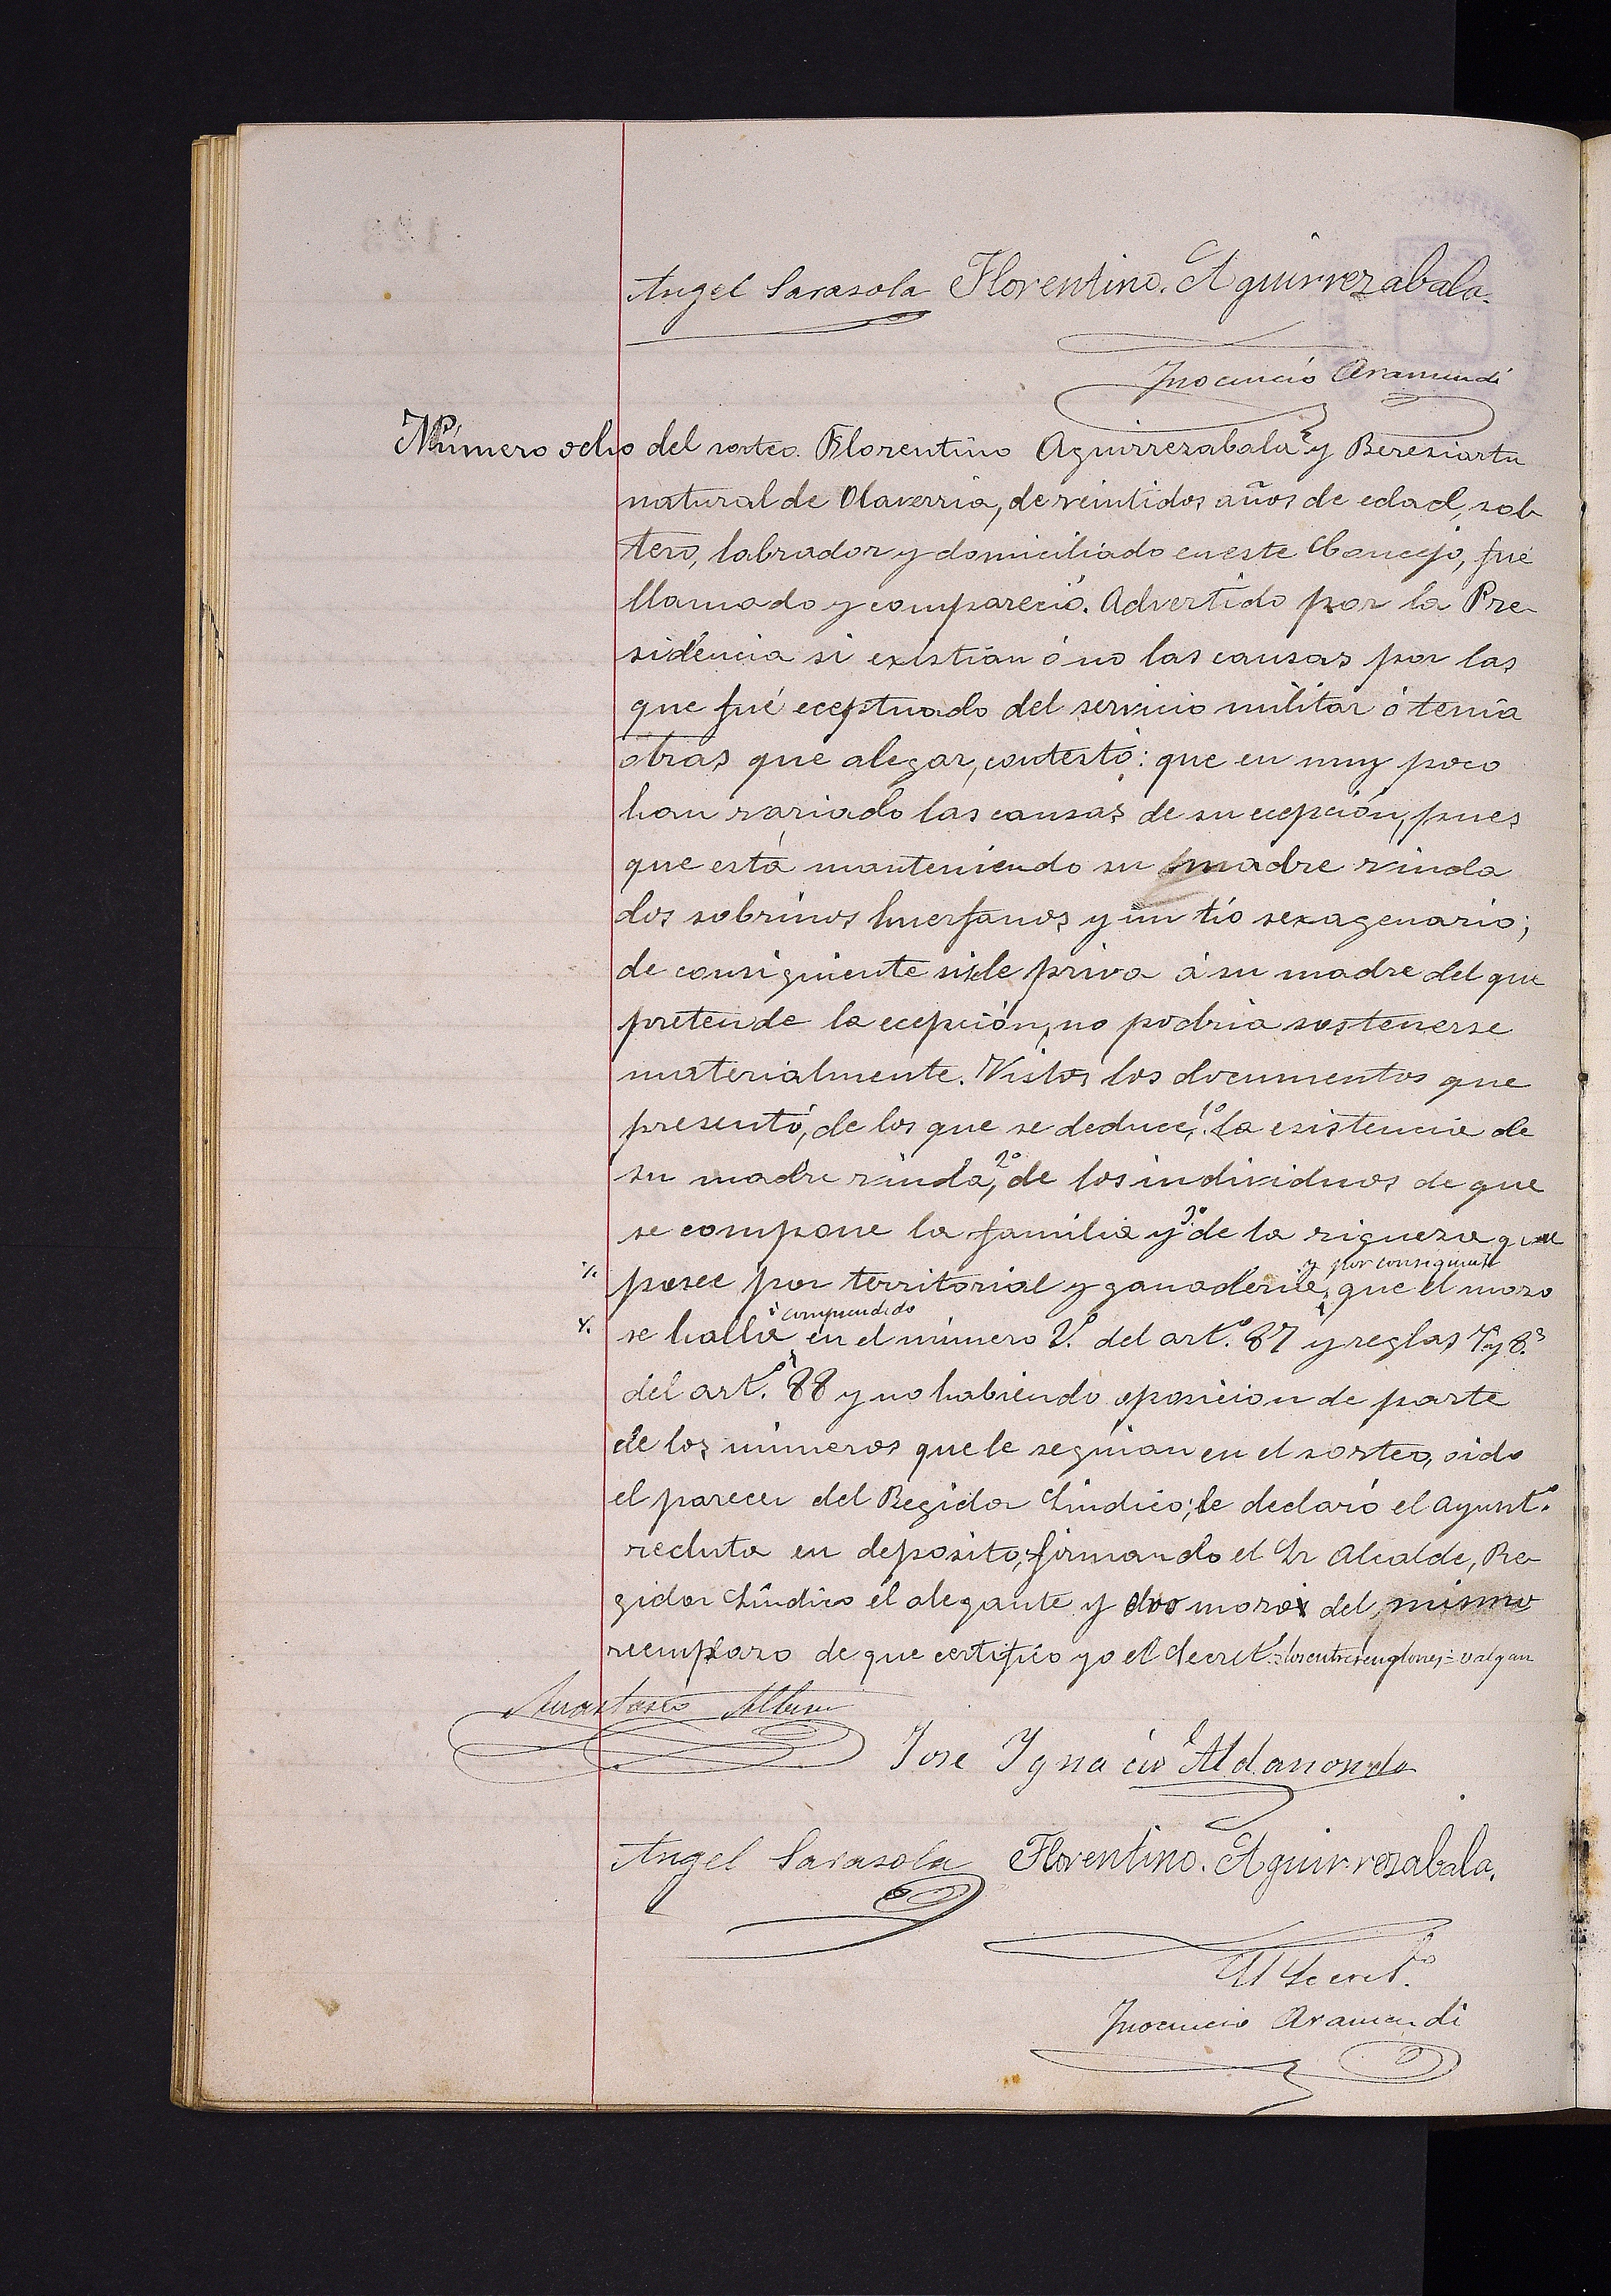 Angel Sarasola Florentino. Aguirrezabala.
Inocencio Aramendi
Número ocho del sorteo. Florentino Aguirrezabala y Bereziartu
natural de Olaverria, de veintidos años de edad, sol-
tero, labrador y domiciliado en este Concejo, fué
llamado y compareció. Advertido por la Pre-
sidencia si existian ó no las causas por las
que fué eceptuado del servicio militar ó tenía
otras que alegar, contestó: que en muy poco
han variado las causas de su ecepción, pues
que está manteniendo su madre viuda
dos sobrinos huerfanos y un tío sexagenario;
de consiguiente si se le priva á su madre del que
pretende la ecepción, no podria sostenerse
materialmente. Vistos los documentos que
presentó, de los que se deduce, 1º la existencia de
su madre viuda, 2º de los individuos de que
se compone la familia y 3º de la riqueza que
posee por territorial y ganaderia, y por consiguiente que el mozo
se halla comprendido en el número 2º. del artº. 87 y reglas 7ª y 8ª
del artº. 88 y no habiendo oposicion de parte
de los números que le seguian en el sorteo, oido
el parecer del Regidor Sindico; le declaró el Ayuntº.
recluta en deposito, firmando el Sr Alcalde, Re-
gidor Sindico el alegante y dos mozos del mismo
reemplazo de que certifico yo el Secretº. = los entrerenglones = valgan
Anastasio
Jose Ygnacio Aldanondo
Angel Sarasola Florentino. Aguirrezabala.
El Secretº.
Inocencio Aramendi